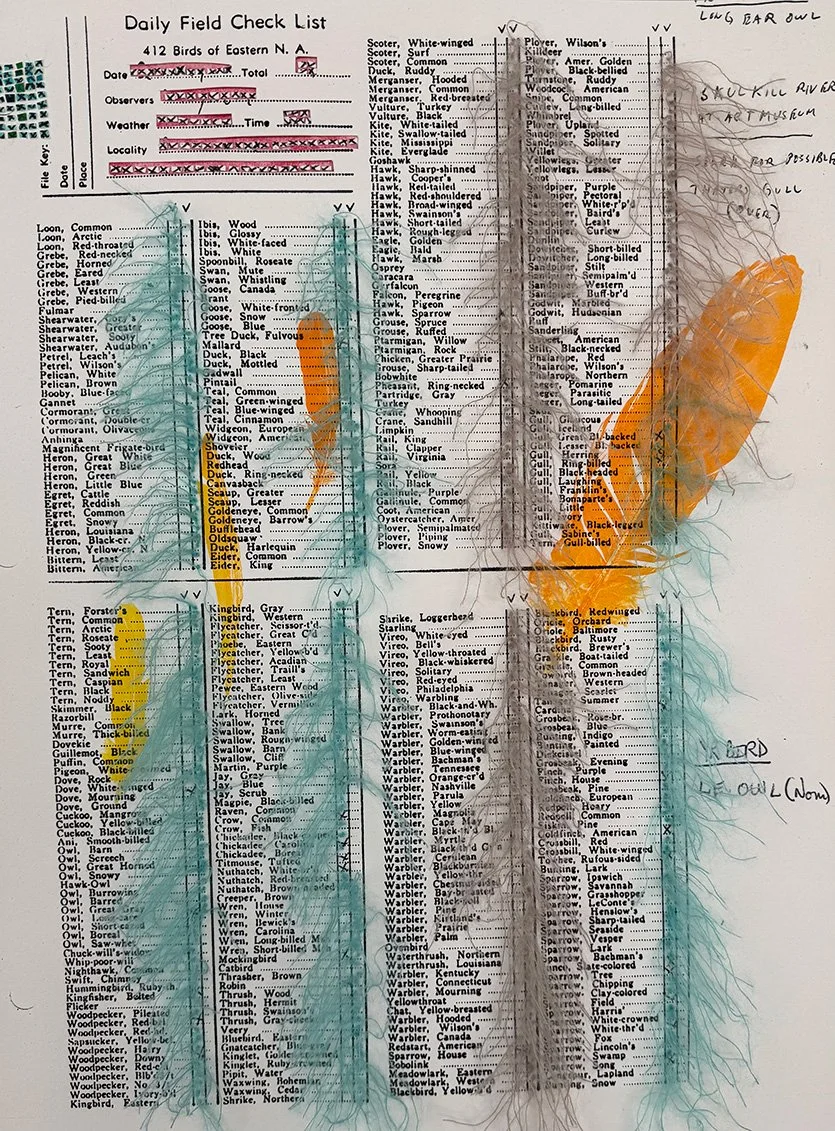 Daily Field Check List
412 Birds of Eastern N. A.
Date Total
Observers
Weather Time
Locality
File Key:
Date
Place
Loon, Common
Loon, Arctic
Loon, Red-throated
Grebe, Red-necked
Grebe, Horned
Grebe, Eared
Grebe, Least
Grebe, Western
Grebe, Pied-billed
Fulmar
Shearwater,
Shearwater, Greater
Shearwater, Sooty
Shearwater, Audubon's
Petrel, Leach's
Petrel, Wilson's
Pelican, White
Pelican, Brown
Booby,
Gannet
Cormorant,
Cormorant,
Cormorant,
Anhinga
Magnificent Frigate-bird
Heron, Great White
Heron, Great Blue
Heron, Green
Heron, Little Blue
Egret, Cattle
Egret, Reddish
Egret, Common
Egret, Snowy
Heron, Louisiana
Heron, Black-cr. N.
Heron, Yellow-cr. N
Bittern, Least
Bittern, America
Ibis, Wood
Ibis, Glossy
Ibis, White-faced
Ibis, White
Spoonbill, Roseate
Swan, Mute
Swan, Whistling
Goose, Canada
Brant
Goose, White-fronted
Goose, Snow
Goose, Blue
Tree Duck, Fulvous
Mallard
Duck, Black
Duck, Mottled
Gadwall
Pintail
Teal, Common
Teal, Green-winged
Teal, Blue-winged
Teal, Cinnamon
Widgeon, European
Widgeon, American
Shoveler
Duck, Wood
Redhead
Duck, Ring-necked
Canvasback
Scaup, Greater
Scaup, Lesser
Goldeneye, Common
Goldeneye, Barrow's
Bufflehead
Oldsquaw
Duck, Harlequin
Eider, Common
Eider, King
Scoter, White-winged
Scoter, Surf
Scoter, Common
Duck, Ruddy
Merganser, Hooded
Merganser, Common
Merganser, Red-breasted
Vulture, Turkey
Vulture, Black
Kite, White-tailed
Kite, Swallow-tailed
Kite, Mississippi
Kite, Everglade
Goshawk
Hawk, Sharp-shinned
Hawk, Cooper's
Hawk, Red-tailed
Hawk, Red-shouldered
Hawk, Broad-winged
Hawk, Swainson's
Hawk, Short-tailed
Hawk, Rough-legged
Eagle, Golden
Eagle, Bald
Hawk, Marsh
Osprey
Caracara
Gyrfalcon
Falcon, Peregrine
Hawk, Pigeon
Hawk, Sparrow
Grouse, Spruce
Grouse, Ruffed
Ptarmigan, Willow
Ptarmigan, Rock
Chicken, Greater Prairie
Grouse, Sharp-tailed
Bobwhite
Pheasant, Ring-necked
Partridge, Gray
Turkey
Crane, Whooping
Crane, Sandhill
Limpkin
Rail, King
Rail, Clapper
Rail, Virginia
Sora
Rail, Yellow
Rail, Black
Gallinule, Purple
Gallinule, Common
Coot, American
Oystercatcher, Amer.
Plover, Semipalmated
Plover, Piping
Plover, Snowy
Plover, Wilson's
Killdeer
Plover, Amer. Golden
Plover, Black-bellied
Turnstone, Ruddy
Woodcock, American
Snipe, Common
Curlew, Long-billed
Whimbrel
Plover, Upland
Sandpiper, Spotted
Sandpiper, Solitary
Willet
Yellowlegs, Greater
Yellowlegs, Lesser
Knot
Sandpiper, Purple
Sandpiper, Pectoral
Sandpiper, White-r'p'd
Sandpiper, Baird's
Sandpiper, Least
Sandpiper, Curlew
Dunlin
Dowitcher, Short-billed
Dowitcher, Long-billed
Sandpiper, Stilt
Sandpiper, Semipalm'd
Sandpiper, Western
Sandpiper, Buff-br'd
Godwit, Marbled
Godwit, Hudsonian
Ruff
Sanderling
Avocet, American
Stilt, Black-necked
Phalarope, Red
Phalarope, Wilson's
Phalarope, Northern
Jaeger, Pomarine
Jaeger, Parasitic
Jaeger, Long-tailed
Gull, Glaucous
Gull, Iceland
Gull, Great Bl.-backed
Gull, Lesser Bl.-backed
Gull, Herring
Gull, Ring-billed
Gull, Black-headed
Gull, Laughing
Gull, Franklin's
Gull, Bonaparte's
Gull, Little
Gull, Ivory
Kittiwake, Black-legged
Gull, Sabine's
Tern, Gull-billed
LONG EAR OWL
SKULKILL RIVER
AT ART MUSEUM
FOR POSSIBLE
THAYERS GULL
(OVER)
Tern, Forster's
Tern, Common
Tern, Arctic
Tern, Roseate
Tern, Sooty
Tern, Least
Tern, Royal
Tern, Sandwich
Tern, Caspian
Tern, Black
Tern, Noddy
Skimmer, Black
Razorbill
Murre, Common
Murre, Thick-billed
Dovekie
Guillemot, Black
Puffin, Common
Pigeon, White-crowned
Dove, Rock
Dove, White-winged
Dove, Mourning
Dove, Ground
Cuckoo, Mangrove
Cuckoo, Yellow-billed
Cuckoo, Black-billed
Ani, Smooth-billed
Owl, Barn
Owl, Screech
Owl, Great Horned
Owl, Snowy
Hawk-Owl
Owl, Burrowing
Owl, Barred
Owl, Great Gray
Owl,
Owl, Short-eared
Owl, Boreal
Owl, Saw-whet
Chuck-will's-widow
Whip-poor-will
Nighthawk, Common
Swift, Chimney
Hummingbird, Ruby-th
Kingfisher, Belted
Flicker
Woodpecker, Pileated
Woodpecker, Red-bel
Woodpecker, Red-hd
Sapsucker, Yellow-bel
Woodpecker, Hairy
Woodpecker, Downy
Woodpecker, Red-c
Woodpecker,
Woodpecker,
Woodpecker, Ivory-b'd
Kingbird, Eastern
Kingbird, Gray
Kingbird, Western
Flycatcher, Scissor-t'd
Flycatcher, Great C'd
Phoebe, Eastern
Flycatcher, Yellow-b'd
Flycatcher, Acadian
Flycatcher, Traill's
Flycatcher, Least
Pewee, Eastern Wood
Flycatcher, Olive-sided
Flycatcher, Vermilion
Lark, Horned
Swallow, Tree
Swallow, Bank
Swallow, Rough-winged
Swallow, Barn
Swallow, Cliff
Martin, Purple
Jay, Gray
Jay, Blue
Jay, Scrub
Magpie, Black-billed
Raven, Common
Crow, Common
Crow, Fish
Chickadee, Black-capped
Chickadee, Carolina
Chickadee, Boreal
Titmouse, Tufted
Nuthatch, White
Nuthatch, Red-breasted
Nuthatch, Brown-headed
Creeper, Brown
Wren, House
Wren, Winter
Wren, Bewick's
Wren, Carolina
Wren, Long-billed M
Wren, Short-billed M
Mockingbird
Catbird
Thrasher, Brown
Robin
Thrush, Wood
Thrush, Hermit
Thrush, Swainson's
Thrush, Gray-cheeked
Veery
Bluebird, Eastern
Gnatcatcher, Blue-gray
Kinglet, Golden-crowned
Kinglet, Ruby-crowned
Pipit, Water
Waxwing, Bohemian
Waxwing, Cedar
Shrike, Northern
Shrike, Loggerhead
Starling
Vireo, White-eyed
Vireo, Bell's
Vireo, Yellow-throated
Vireo, Black-whiskered
Vireo, Solitary
Vireo, Red-eyed
Vireo, Philadelphia
Vireo, Warbling
Warbler, Black-and-Wh.
Warbler, Prothonotary
Warbler, Swainson's
Warbler, Worm-eating
Warbler, Golden-winged
Warbler, Blue-winged
Warbler, Bachman's
Warbler, Tennessee
Warbler, Orange-cr'd
Warbler, Nashville
Warbler, Parula
Warbler, Yellow
Warbler, Magnolia
Warbler, Cape May
Warbler, Black-th'd Bl
Warbler, Myrtle
Warbler, Black-th'd G
Warbler, Cerulean
Warbler, Blackburnian
Warbler, Yellow-thr
Warbler, Chestnut-sided
Warbler, Bay-breasted
Warbler, Black-poll
Warbler, Pine
Warbler, Kirtland's
Warbler, Prairie
Warbler, Palm
Ovenbird
Waterthrush, Northern
Waterthrush, Louisiana
Warbler, Kentucky
Warbler, Connecticut
Warbler, Mourning
Yellowthroat
Chat, Yellow-breasted
Warbler, Hooded
Warbler, Wilson's
Warbler, Canada
Redstart, American
Sparrow, House
Bobolink
Meadowlark, Eastern
Meadowlark, Western
Blackbird, Yellow-h'd
Blackbird, Redwinged
Oriole, Orchard
Oriole, Baltimore
Blackbird, Rusty
Blackbird, Brewer's
Grackle, Boat-tailed
Grackle, Common
Cowbird, Brown-headed
Tanager, Western
Tanager, Scarlet
Tanager, Summer
Cardinal
Grosbeak, Rose-br.
Grosbeak, Blue
Bunting, Indigo
Bunting, Painted
Dickcissel
Grosbeak, Evening
Finch, Purple
Finch, House
Goldfinch, European
Redpoll, Hoary
Redpoll, Common
Siskin, Pine
Goldfinch, American
Crossbill, Red
Crossbill, White-winged
Towhee, Rufous-sided
Bunting, Lark
Sparrow, Ipswich
Sparrow, Savannah
Sparrow, Grasshopper
Sparrow, LeConte's
Sparrow, Henslow's
Sparrow, Sharp-tailed
Sparrow, Seaside
Sparrow, Vesper
Sparrow, Lark
Sparrow, Bachman's
Junco, Slate-colored
Sparrow, Tree
Sparrow, Chipping
Sparrow, Clay-colored
Sparrow, Field
Sparrow, Harris'
Sparrow, White-crowned
Sparrow, White-thr'd
Sparrow, Fox
Sparrow, Lincoln's
Sparrow, Swamp
Sparrow, Song
Longspur, Lapland
Bunting, Snow
BIRD
OWL (Nom)